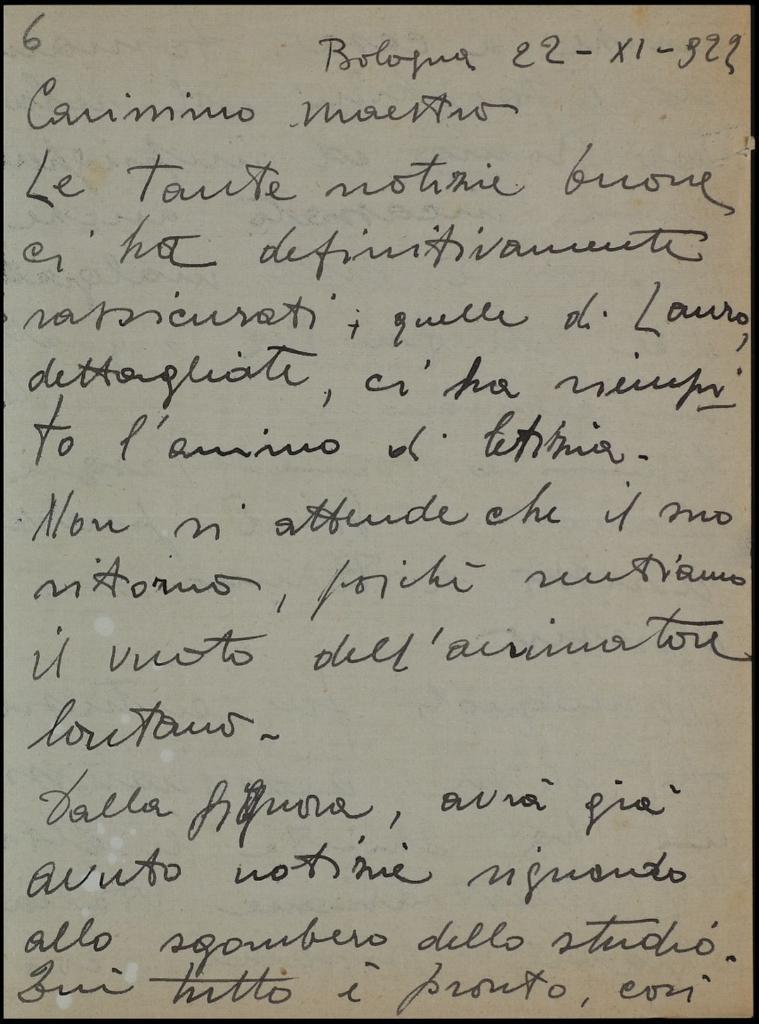 6
Bologna 22-XI-922
Carissimo maestro
Le tante notizie buone
ci ha definitivamente
rassicurati; quelle di Lauro,
dettagliate, ci ha riempi
to l'animo di letizia.
Non si attende che il suo
ritorno, poichè sentiamo
il vuoto dell'animatore
lontano.
Dalla signora, avrà già
avuto notizie riguardo
allo sgombero dello studio.
Qui tutto è pronto, così